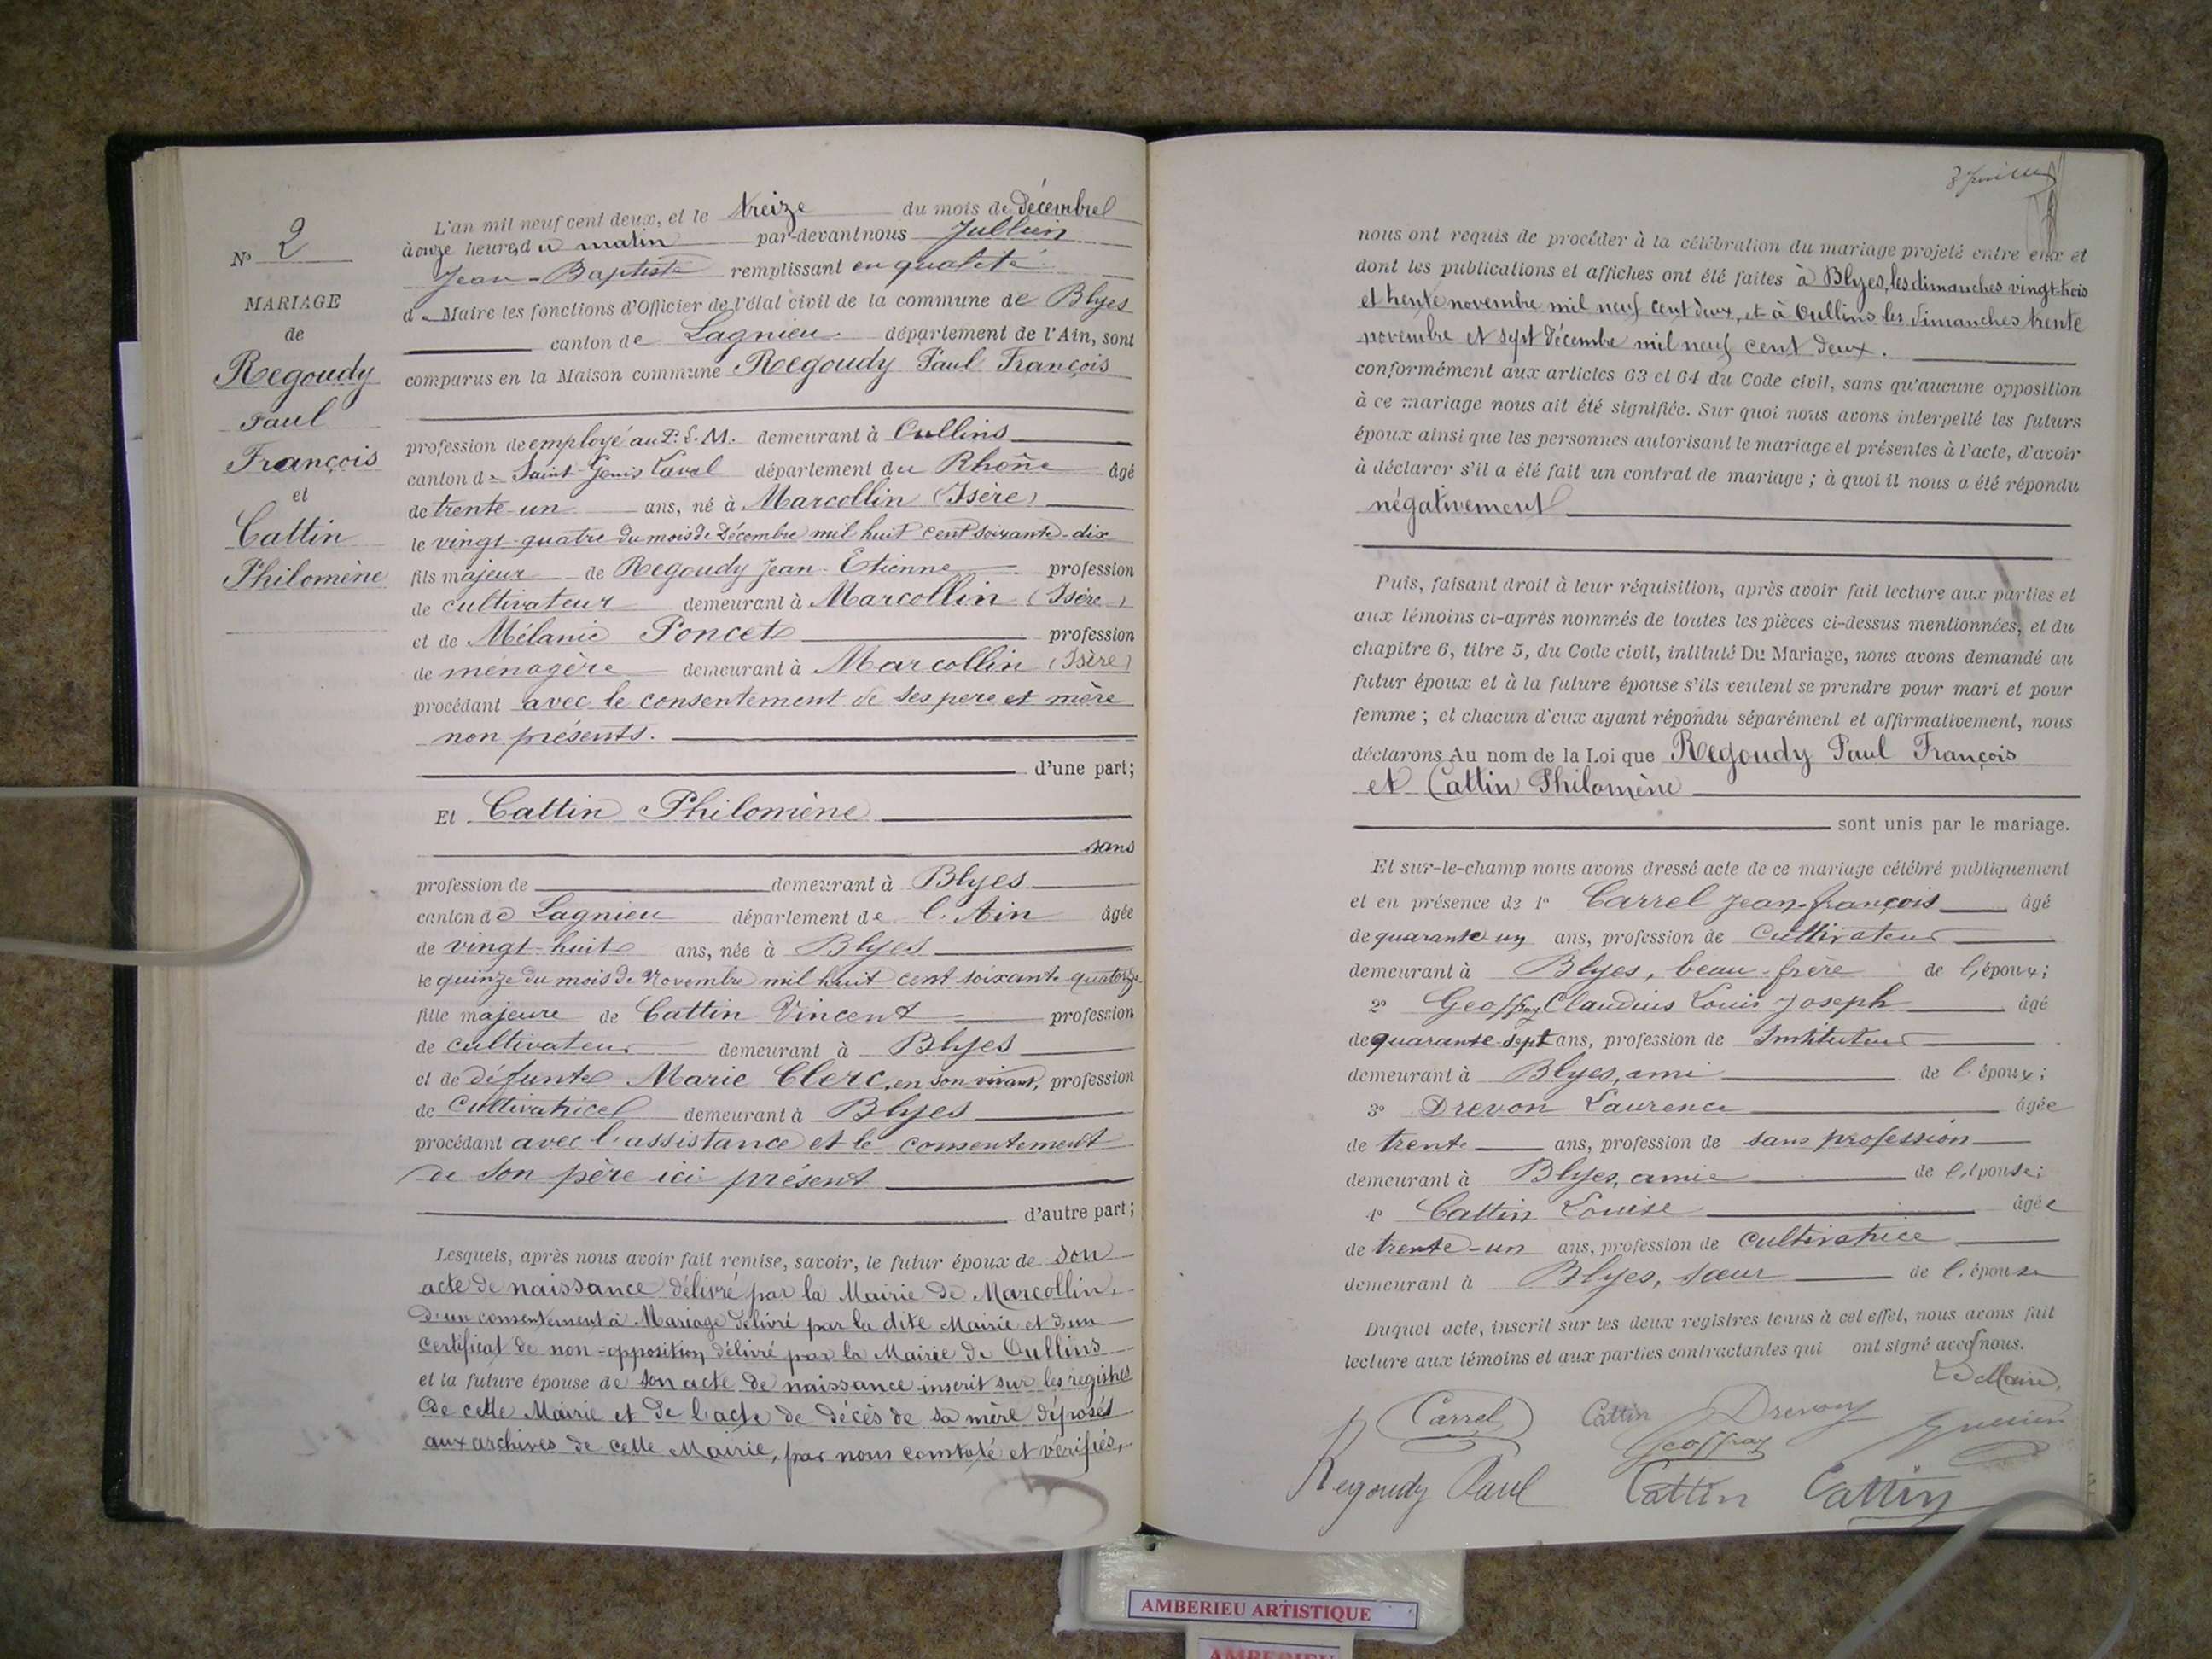 N° 2
MARIAGE
de
Regoudy
Paul
François
et
Cattin
Philomène
L'an mil neuf cent deux, et le treize du mois de décembre
à onze heures du matin par-devant nous Jullien
Jean-Baptiste remplissant en qualité
de Maire les fonctions d'Officier de l'état civil de la commune de Blyes
canton de Lagnieu département de l'Ain, sont
comparus en la Maison commune Regoudy Paul François
profession de employé au P.L.M. demeurant à Oullins
canton de Saint-Genis Laval département du Rhône âgé
de trente-un ans, né à Marcollin (Isère)
le vingt-quatre du mois de Décembre mil huit cent soixante-dix
fils majeur de Regoudy Jean-Etienne profession
de cultivateur demeurant à Marcollin (Isère)
et de Mélanie Poncet profession
de ménagère demeurant à Marcollin (Isère)
procédant avec le consentement de ses père et mère
non présents.
d'une part;
Et Cattin Philomène
sans
profession de demeurant à Blyes
canton de Lagnieu département de l'Ain âgée
de vingt-huit ans, née à Blyes
le quinze du mois de Novembre mil huit cent soixante quatorze
fille majeure de Cattin Vincent profession
de cultivateur demeurant à Blyes
et de défunte Marie Clerc, en son vivant, profession
de Cultivatrice demeurant à Blyes
procédant avec l'assistance et le consentement
de son père ici présent
d'autre part;
Lesquels, après nous avoir fait remise, savoir, le futur époux de son
acte de naissance délivré par la Mairie de Marcollin,
d'un consentement à Mariage délivré par la dite Mairie et d'un
certificat de non-opposition délivré par la Mairie de Oullins
et la future épouse de son acte de naissance inscrit sur les registres
de cette Mairie et de l'acte de décès de sa mère déposés
aux archives de cette Mairie, par nous constaté et vérifiés,
nous ont requis de procéder à la célébration du mariage projeté entre eux et
dont les publications et affiches ont été faites à Blyes, les dimanches vingt-trois
et trente novembre mil neuf cent deux, et à Oullins les dimanches trente
novembre et sept décembre mil neuf cent deux.
conformément aux articles 63 et 64 du Code civil, sans qu'aucune opposition
à ce mariage nous ait été signifiée. Sur quoi nous avons interpellé les futurs
époux ainsi que les personnes autorisant le mariage et présentes à l'acte, d'avoir
à déclarer s'il a été fait un contrat de mariage ; à quoi il nous a été répondu
négativement
Puis, faisant droit à leur réquisition, après avoir fait lecture aux parties et
aux témoins ci-après nommés de toutes les pièces ci-dessus mentionnées, et du
chapitre 6, titre 5, du Code civil, intitulé Du Mariage, nous avons demandé au
futur époux et à la future épouse s'ils veulent se prendre pour mari et pour
femme ; et chacun d'eux ayant répondu séparément et affirmativement, nous
déclarons Au nom de la Loi que Regoudy Paul François
et Cattin Philomène
sont unis par le mariage.
Et sur-le-champ nous avons dressé acte de ce mariage célébré publiquement
et en présence de 1° Carrel Jean-François âgé
de quarante un ans, profession de Cultivateur
demeurant à Blyes, beau-frère de l'époux;
2° Geoffray Claudius Louis Joseph âgé
de quarante-sept ans, profession de Instituteur
demeurant à Blyes, ami de l'époux;
3° Drevon Laurence âgée
de trente ans, profession de sans profession
demeurant à Blyes, amie de l'épouse;
4° Cattin Louise âgée
de trente-un ans, profession de Cultivatrice
demeurant à Blyes, sœur de l'épouse
Duquel acte, inscrit sur les deux registres tenus à cet effet, nous avons fait
lecture aux témoins et aux parties contractantes qui ont signé avec nous.
Le Maire,
Carrel Cattin Drevon
Geoffray
Regoudy Paul Cattin Cattin
AMBERIEU ARTISTIQUE
AMBERIEU